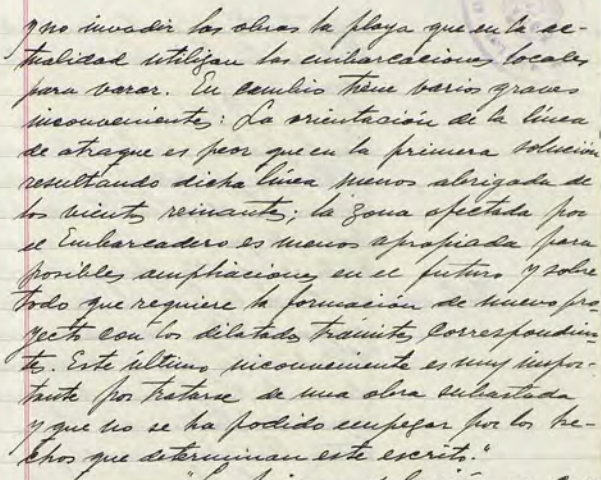 y no invadir las obras la playa que en la ac-
tualidad utilizan las embarcaciones locales
para varar. En cambio tiene varios graves
inconvenientes: La orientación de la línea
de atraque es peor que en la primera solución
resultando dicha línea menos abrigada de
los vientos reinantes; la zona afectada por
el Embarcadero es menos apropiada para
posibles ampliaciones en el futuro y sobre
todo que requiere la formación de nuevo pro-
yecto con los dilatados trámites correspondien-
tes. Este último inconveniente es muy impor-
tante por tratarse de una obra subastada
y que no se ha podido empezar por los he-
chos que determinan este escrito."